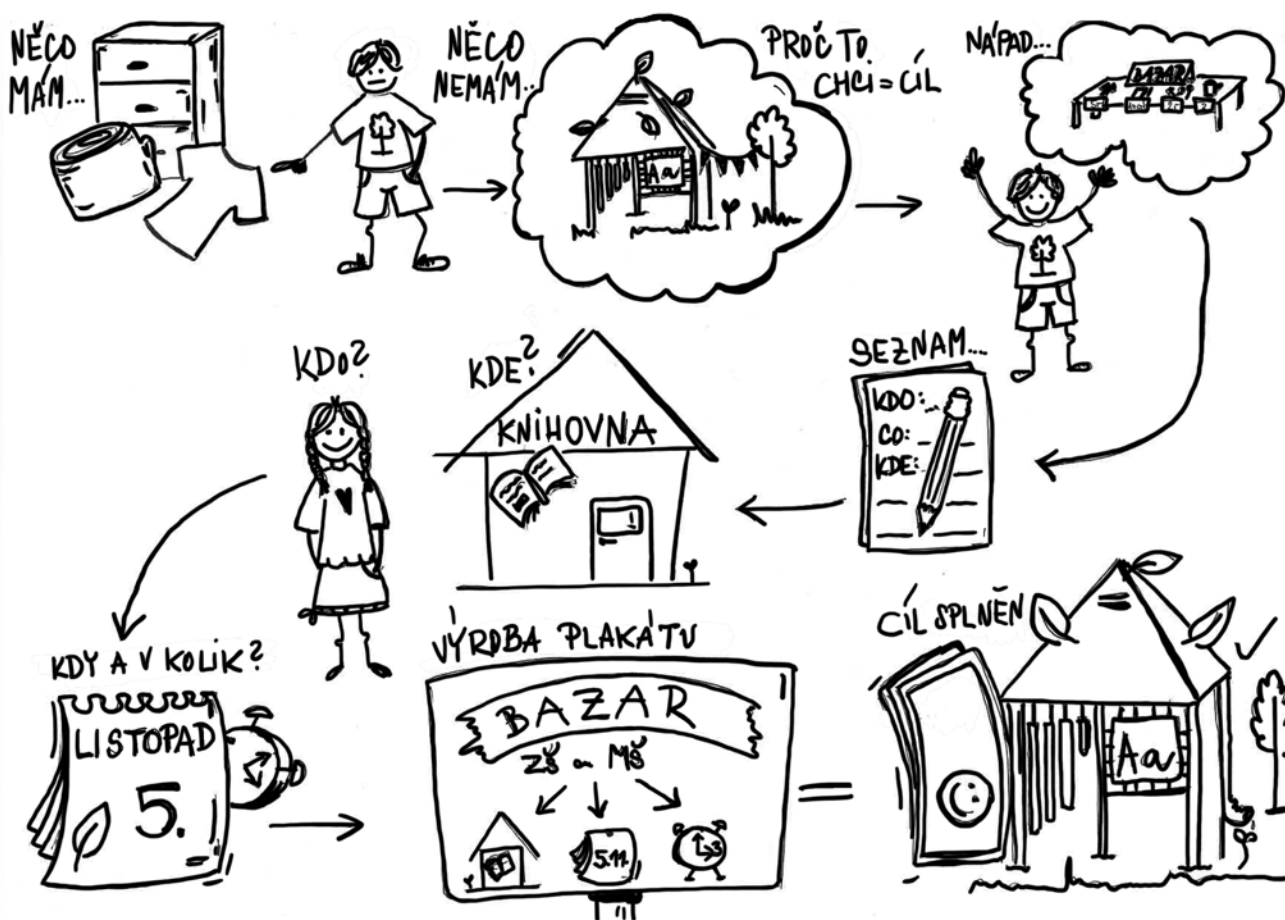 NĚCO
MÁM...
NĚCO
NEMÁM..
Aa
PROČ TO
CHCI = CÍL
NÁPAD...
BAZAR
SEZNAM...
KDO:
CO:
KDE:
KDE?
KNIHOVNA
KDO?
KDY A V KOLIK?
LISTOPAD
5.
VÝROBA PLAKÁTU
BAZAR
ZŠ a MŠ
5.11.
=
CÍL SPLNĚN
Aa